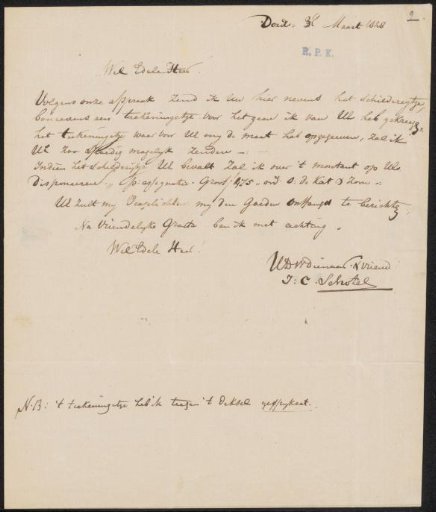 2
Dord. 31 Maart 1828
R.P.K.
Wel Edele Heer
Volgens onze afspraak zend ik UW hier nevens het schilderijtje,
benevens een teekeningetje voor het geen ik van UE heb gekregen
het teekeningetje waar voor UE my de maat heb opgegeven, zal ik
UE zoo spoedig mogelyk zenden —
Indien het schilderijtje UE bevalt zal ik over 't montant op UE
disponeeren, groot ƒ 75 - ord
UE zult my verplichten my den goeden ontfangst te berichten
Na vriendelyke Groete ben ik met achting.
Wel Edele Heer!
UEDW Dienaar & vriend
J: C. Schotel
N.B: 't teekeningetje heb ik tegen 't deksel